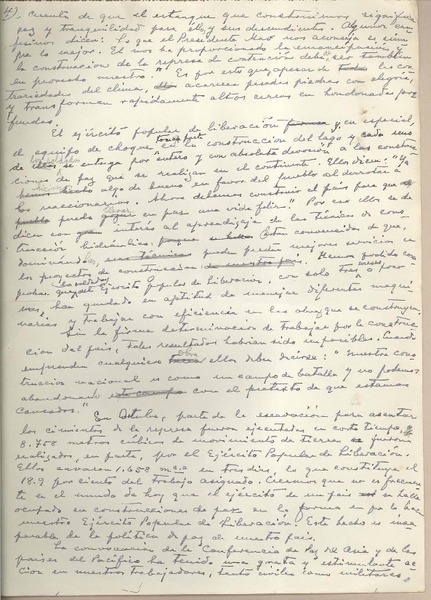 4) cuenta de que el estanque que construimos significa
paz y tranquilidad para ellos y sus descendientes. Algunos cam-
pesinos dicen: "Lo que el Presidente Mao nos aconseja es siem-
pre lo mejor. El nos ha proporcionado la emancipación y
la construcción de la represa de contención debe ser también
en provecho nuestro." Es por esto que, a pesar de las con-
trariedades del clima, acarrean pesadas piedras con alegría
y transforman rapidamente altos cerros en hondonadas pro-
fundas.
El ejército popular de liberación y, en especial,
el equipo de choque en la construcción del lago y cada uno
se entrega por entero y con absoluta devoción a las construc-
ciones de paz que se realizan en el continente. Ellos dicen: "Hi-
cimos algo de bueno en favor del pueblo al derrotar a
los reaccionarios. Ahora debemos construir el país para que
pueda gozar en paz una vida feliz". Por eso ellos se de-
dican con interés al aprendizaje de las técnicas de cons-
trucción hidráulica. Están convencidos de que,
dominándola, pueden prestar mejores servicios en
los proyectos de construcciones. Hemos podido com-
probar que los soldados del Ejército Popular de Liberación, con solo tres o cuatro meses
han ganado en aptitud de manejar diferentes maqui-
narias y trabajar con eficiencia en las obras que se construyen.
Sin la firme determinación de trabajar por la construc-
ción del país, tales resultados habrían sido imposibles. Cuando
emprenden cualquier obra ellos deben decirse: "Nuestra cons-
trucción nacional es como un campo de batalla y no podemos
abandonarlo con el pretexto de que estamos
cansados."
En Octubre, parte de la excavación para asentar
los cimientos de la represa fueron ejecutadas en corto tiempo, y
8.758 metros cúbicos de movimiento de tierras fueron
realizados, en parte, por el Ejército Popular de Liberación.
Ellos cavaron 1.658 m.c. en tres días, lo que constituye el
18.9 por ciento del trabajo asignado. Creemos que no es frecuen-
te en el mundo de hoy que el ejército de un país se halle
ocupado en construcciones de paz en la forma en que lo hace
nuestro Ejército Popular de Liberación. Este hecho es inse-
parable de la política de paz de nuestro país.
La convocación de la Conferencia de Paz del Asia y de los
países del Pacífico ha tenido una grata y estimulante ac-
ción en nuestros trabajadores, tanto civiles como militares.